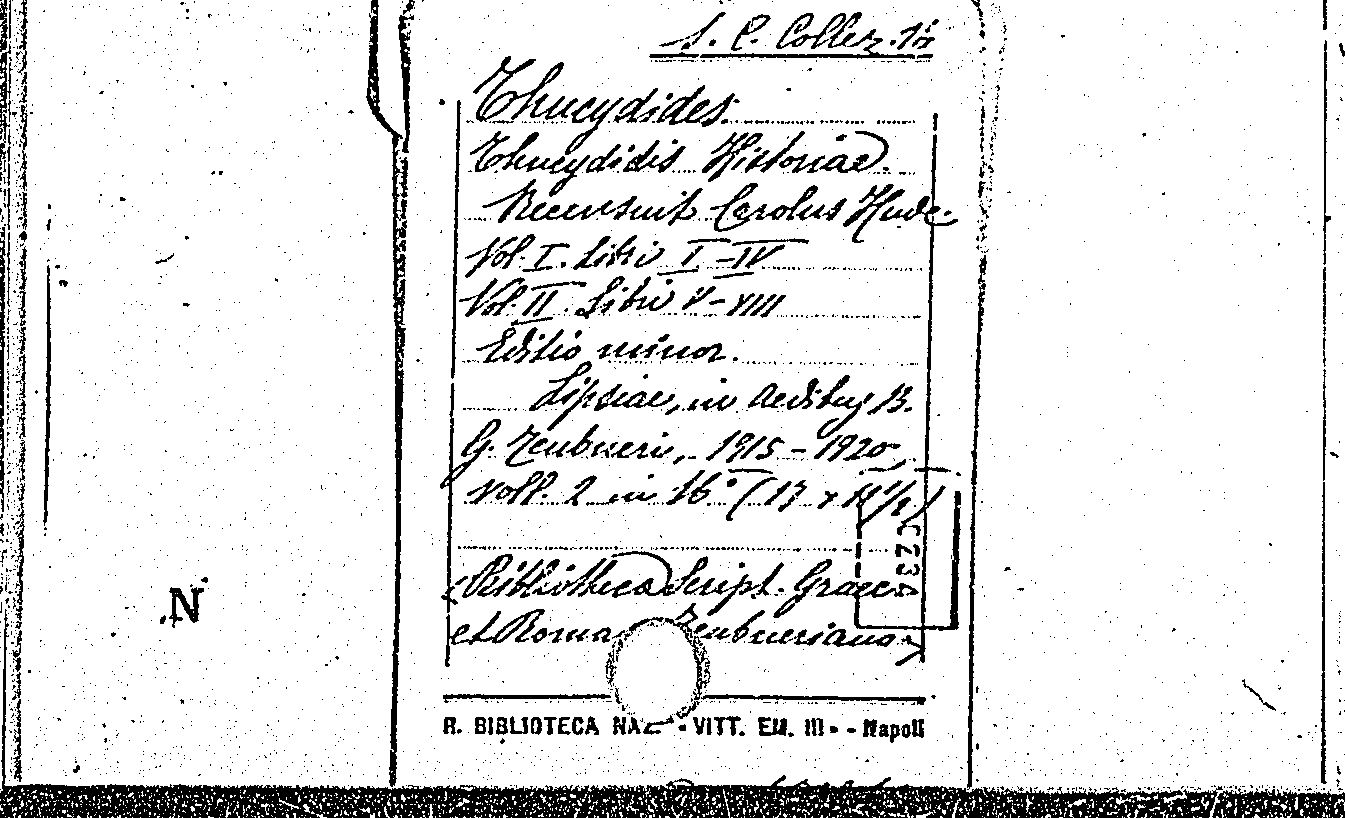 S. C. Collez. 1
Thucydides.
Thucydidis Historiae.
Recensuit Carolus Hude.
Vol. I. Libri I-IV
Vol. II. Libri V-VIII
Editio minor.
Lipsiae, in Aedibus B.
G. Teubneri, 1915 - 1920,
voll. 2 in 16° (17 x 11 1/2)
(Bibliotheca Script. Graec.
et Roma Teubneriana.)
R. BIBLIOTECA NAZ VITT. EM. III - Napoli
N